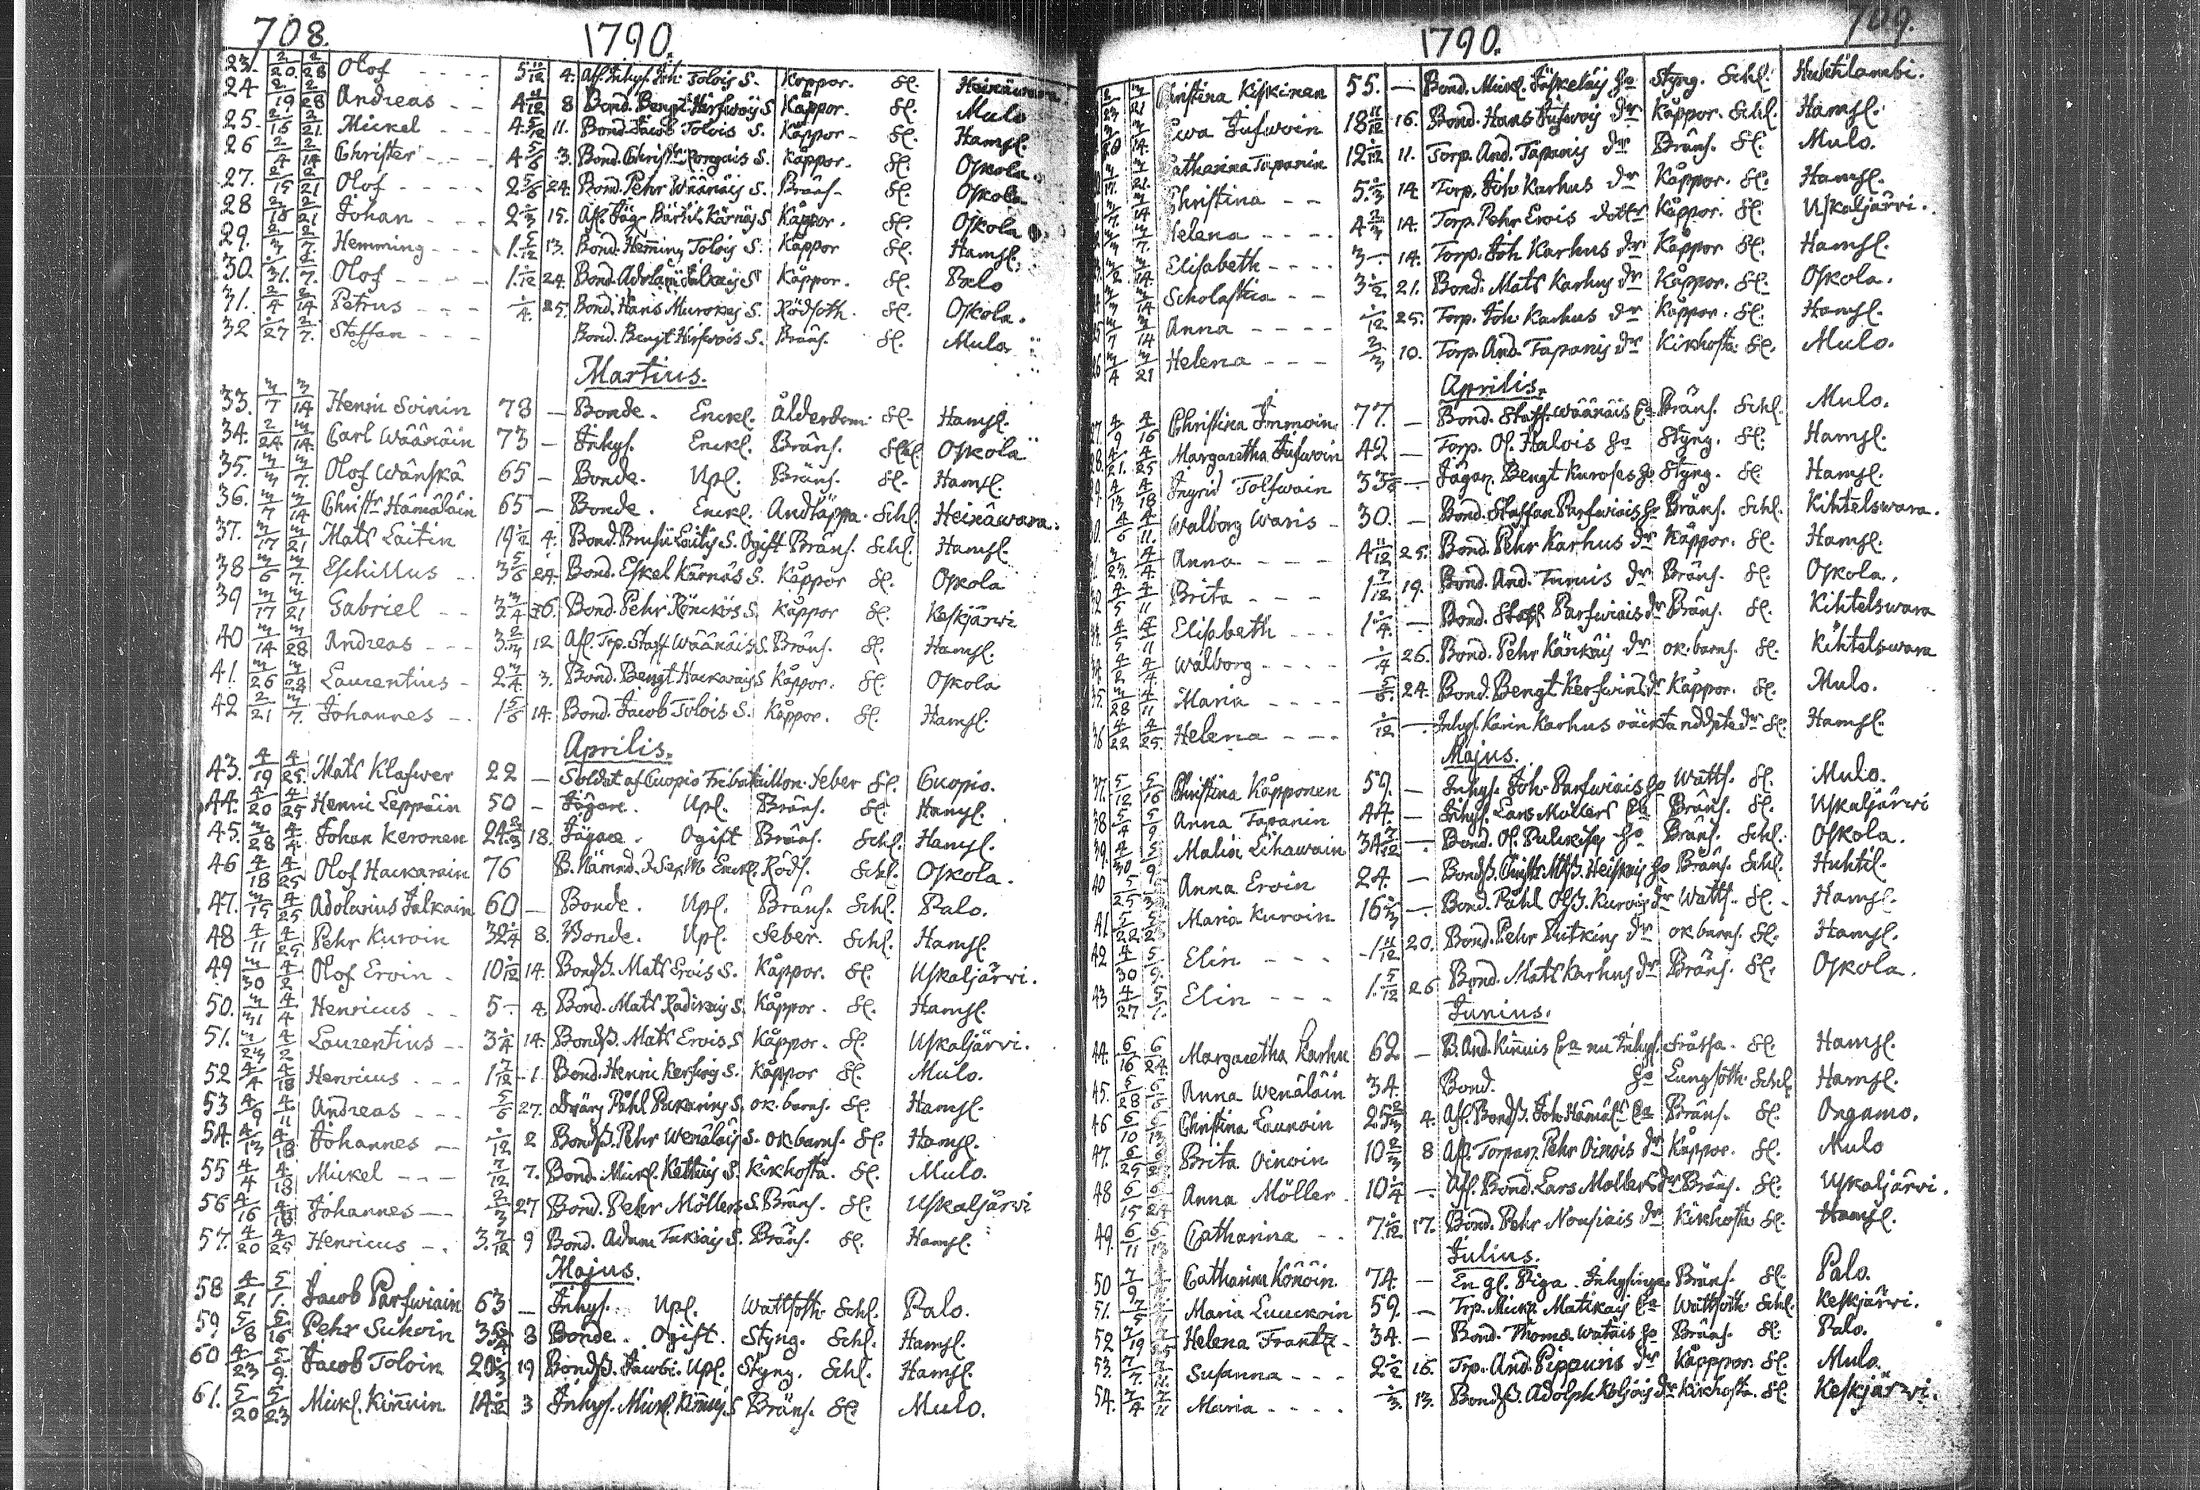 708. 1790.
23. 2/20 2/28 Olof - - - - 5 11/12 4. Afl. Inhys. Joh. Tolvis S. Koppor. Sl. Heinäwara
24 2/19 2/28 Andreas - - 4 11/12 8 Bond. Bengt Hirfwois S Kåppor. Sl. Mulo
25. 2/15 2/21 Mickel - - - 4 5/12 11. Bond. Jacob Tolvis S. Kåppor- Sl. Hamsl.
26 2/4 2/14 Christer - - - 4 5/6 3. Bond. Christ. S. Kåppor. Sl. Oskola.
27. 2/15 2/21 Olof - - - - 2 5/6 24. Bond. Pehr Wäänäis S. Bräns- Sl. Oskola
28 2/18 2/21 Johan - - - 2 15. Afl. Jäg. Kärnäs S Kåppor. Sl. Oskola
29. 2/3 2/7 Hemming - - - 1. 5/12 13. Bond. Hem̄ing Tolvis S. Kåppor Sl. Hamsl.
30. 1/31. 2/7. Olof - - - - 1. 1/12 24. Bond. Jalkais S Kåppor. Sl. Palo
31. 2/4 2/14 Petrus - - - 1/4. 25. Bond. Hans S. Rödsoth. Sl. Oskola.
32 1/27 2/7. Staffan - - - Bond. Bengt Hirfwois S. Bräns. Sl. Mulo.
Martius.
33. 3/7 3/14 Henric Soinin 78 — Bonde. Enckl. Ålderdom Sl. Hamsl.
34. 2/24 3/14. Carl Wäänäin 73 — Inhys. Enckl. Bräns. Oskola
35. 3/3 3/7. Olof Wänskä 65 — Bonde. Upl. Bräns. Sl. Hamsl.
36. 3/7 3/14 Christr Hämäläin 65 — Bonde. Enckl. Andtäppa. Schl. Heinäwara.
37. 3/17 3/21 Mats Laitin 19 1/2 4. Bond. Laitis S. Ogift Bräns. Schl. Hamsl.
38 3/6 3/7. Eschillus - 3 5/6 24. Bond. Eskel Kärnäs S. Kåppor Sl. Oskola
39 3/17 3/21 Gabriel - - 3 3/4 Bond. Pehr Rönckös S. Kåppor Sl. Keskjärwi
40 3/14 3/28 Andreas - - - 3. 2/3 12 Afl. Trp. Staff Wäänäis S. Bräns. Sl. Hamsl.
41. 3/26 3/28 Laurentius - 2 3/4. 3. Bond. Bengt Hackarais S Kåppor. Sl. Oskola
42 2/21 3/7. Johannes - . 1 5/6 14. Bond. Jacob Tolvis S. Kåppor. Sl. Hamsl.
Aprilis.
43. 4/19 4/25. Mats Klafwer 22 — Soldat af Cuopio Feber Sl. Cuopio.
44. 4/20 4/25 Henric Leppäin 50 - Jägare. Upl. Bräns. Sl. Hamsl.
45. 3/28 4/4. Johan Keronen 24 2/3 18. Jägare. Ogift Bräns. Schl. Hamsl.
46 4/18 4/25 Olof Hackarain 76 B. Nämnd. Enckl. Röds. Schl. Oskola.
47. 3/15 4/25 Adolarius Jalkain 60 — Bonde. Upl. Bräns. Schl. Palo.
48 4/11 4/25 Pehr Kuroin 32 1/4 8. Bonde. Upl. Feber. Schl. Hamsl.
49 3/30 4/2 Olof Eroin - 10 1/12 14. Bonds. Mats Erois S. Kåppor. Sl. Uskaljärwi.
50. 3/31 4/4 Henricus - - 5 - 4. Bond. Mats S. Kåppor. Sl. Hamsl.
51. 3/23 4/2 Laurentius - - 3 1/4 14. Bonds. Mats Erois S Kåppor. Sl. Uskaljärwi.
52 4/4 4/18 Henricus - - - 1 7/12 1. Bond. Henric S. Kåppor Sl. Mulo.
53 4/9 4/11 Andreas - - - 5/6 27. Dräng Påhl S. ok. barns. Sl. Hamsl.
54. 4/13 4/18 Johannes - 1/12 2 Bonds. Pehr Wenäläis S. ok. barns. Sl. Hamsl.
55 4/4 4/18 Mickel - - - 7/12 7. Bond. Mickl. S. Kikhosta. Sl. Mulo.
56 4/16 4/18 Johannes - - 2/3 27 Bond. Pehr Möllers S. Bräns. Sl. Uskaljärwi
57. 4/20 4/25 Henricus - . 3. 7/12 9 Bond. Adam S. Bräns. Sl. Hamsl.
Majus.
58 4/21 5/1. Jacob Parfwiain 63 — Inhys. Upl. Wattsoth. Schl. Palo.
59. 5/8 5/16 Pehr Suhoin 35 8 Bonde. Ogift. Styng. Schl. Hamsl.
60 4/23 5/9. Jacob Toloin 19 Bonds. Jacobi. Upl. Styng. Schl. Hamsl.
61. 5/20 5/23 Mickl. Kin̄uin 14 1/2 3 Inhys. Mickl. Kin̄uis S Bräns. Sl. Mulo.
1790. 709.
Christina Kiskinen 55. — Bond. Mickl. Jäskeläis ho Styng. Schl. Huhtilambi.
Ewa Jufwoin 18 11/12 16. Bond. Hans Jufwois dr Kåppor. Schl. Hamsl.
Catharina Tapanin 12 11. Torp. And. Tapanis dr Bräns. Sl. Mulo.
Christina - - 5. 14. Torp. Joh. Karhus dr Kåppor. Sl. Hamsl.
Helena - - - - 4 2/3 14. Torp. Pehr Erois dottr Kåppor. Sl. Uskaljärwi.
Elisabeth - - - - 3 — 14. Torp. Joh Karhus dr Kåppor Sl. Hamsl.
Scholastica - - 3 1/2 21. Bond. Mats Karhus dr Kåppor. Sl. Oskola.
Anna - - - - 1/12 25. Torp. Joh Karhus dr Kåppor. Sl. Hamsl.
Helena - - - 2/3 10. Torp. And. Tapanis dr Kikhosta Sl. Mulo.
Aprilis.
27. 4/9 4/16 Christina Immoin 77. — Bond. Staff. Wäänäis Ea Bräns. Schl. Mulo.
28. 4/21. 4/25 Margaretha Jufwoin 42 — Torp. Ol. Halois ho Styng. Sl. Hamsl.
29. 4/13 4/18 Ingrid Tolfwain 33 — Jägar. Bengt ho Styng. Sl Hamsl.
30. 4/6 4/11. Walborg Waris - 30. — Bond. Staffan Parfwiais ho Bräns. Schl. Kihtelswara.
31. 3/23. 4/4. Anna - - - 4 11/12 25. Bond. Pehr Karhus dr Kåppor. Sl. Hamsl.
32 4/5 4/11 Brita - - - 1 7/12 19. Bond. And. Turuis dr Bräns. Sl. Oskola.
33. 4/5 4/11 Elisabeth - - - 1 1/4. — Bond. Staff. Parfwiais dr Bräns. Sl. Kihtelswara
34. 4/2 4/4 Walborg - - - - 1/4 26. Bond. Pehr dr ok. barns. Sl. Kihtelswara
35. 3/28 4/11 Maria - - - - 5/6. 24. Bond. Bengt dr Kåppor. Sl. Mulo.
36 4/22 4/25. Helena - - - 1/12 — Inhys. Karin Karhus oäckta dr Sl. Hamsl.
Majus.
37. 5/12 5/16 Christina Kåpponen 59. — Inhys. Joh. Parfwiais ho Watts. Sl. Mulo.
38 5/4 5/9 Anna Tapanin 44. — Inhys. Lars Möllers Ea Bräns. Sl. Uskaljärwi
39. 4/30 5/9 Malin Lihawain 34 7/12 — Bond. Ol. ho Bräns. Schl. Oskola.
40 5/25 Anna Eroin 24. — Bonds. ho Bräns. Schl. Huhtil.
41. 5/22 Maria Kuroin 16 — Bond. Påhl Kurois dr Watts. Sl. - Hamsl.
42 4/30 5/9. Elin - - - 1 11/12 20. Bond. Pehr Putkins dr ok barns. Sl. Hamsl.
43 4/27 5/1. Elin - - - 1. 5/12 26 Bond. Mats Karhus dr Bräns. Sl. Oskola.
Junius.
44. 6/16 6/24. Margaretha Karhu 62 — B. And. Kin̄uis Ea nu Inhys. Fråssa. Sl. Hamsl.
45. 5/28 6/6 Anna Wenäläin 34. Bond. ho Lungsoth. Schl. Hamsl.
46 6/10 6/13 Christina Lauroin 25 2/3 4. Afl. Bonds. Joh. Ea Bräns. Sl. Ongamo.
47. Brita Oinoin 10 2/3 8 Afl. Torpar. Pehr Oinois dr Kåppor. Sl. Mulo
48 6/15 6/24 Anna Möller. 10 1/4 — Afl. Bond. Lars Möllers dr Bräns. Sl. Uskaljärwi.
49. 6/11 6/13 Catharina - - 7. 1/12 17. Bond. Pehr Nousiais dr Kikhosta Sl. Hamsl.
Julius.
50 Catharina Könöin 74. — En gl. Piga. Inhysinge Bräns. Sl. Palo.
51. Maria Luuckoin 59. — Trp. Mick. Matikais Ea Wattsoth. Schl. Keskjärwi.
52 7/19 Helena Frantz - 34. — Bond. Thoms Watais ho Bräns. Sl. Palo.
53. Susanna - - - 2 1/2 16. Trp. And. Pippuris dr Kåppor. Sl. Mulo.
54. 7/4 7/11 Maria - - - - 1/3. 13. Bonds. Adolph dr Kikhosta. Sl Keskjärwi.